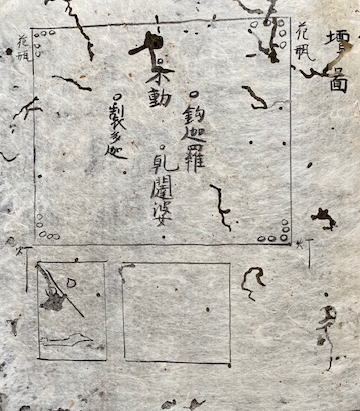 壇圖
花瓶
花瓶
不動
鈎迦羅
制多迦
乹闥婆
灯
灯